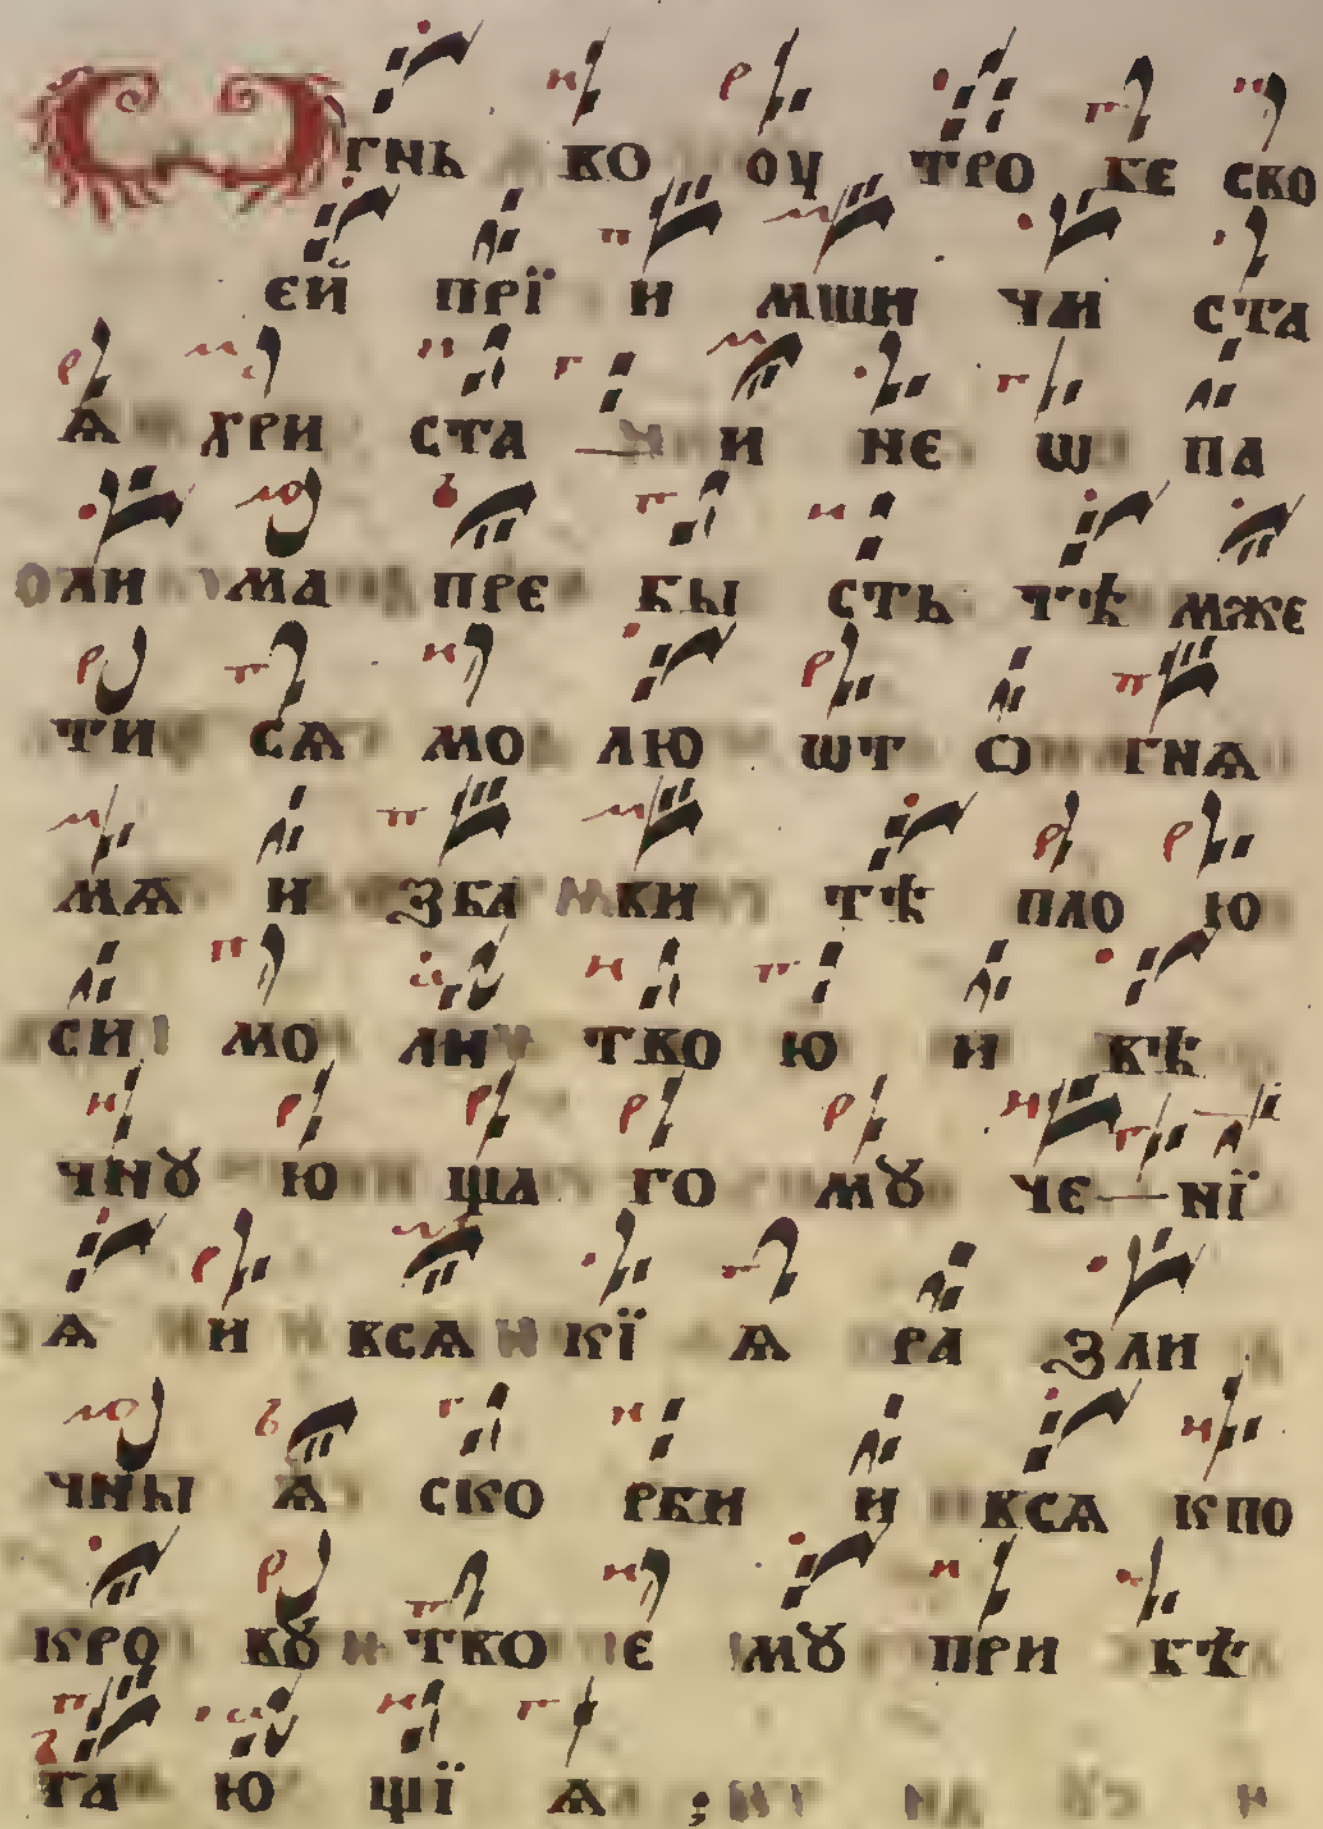 Ѻгнь во оу тро бѣ сво
єй прї и мши чи ста
ѧ хри ста и не ѡ па
ли ма пре бы сть тѣ мже
ти сѧ мо лю ѡт о гнѧ
мѧ и зба ви тѣ пло ю
си мо ли тво ю и вѣ
чнꙋ ю ща го мꙋ че нї
ѧ и всѧ кї ѧ ра зли
чны ѧ ско рби и всѧ к по
кро вꙋ тво є мꙋ при бѣ
га ю щї ѧ ;